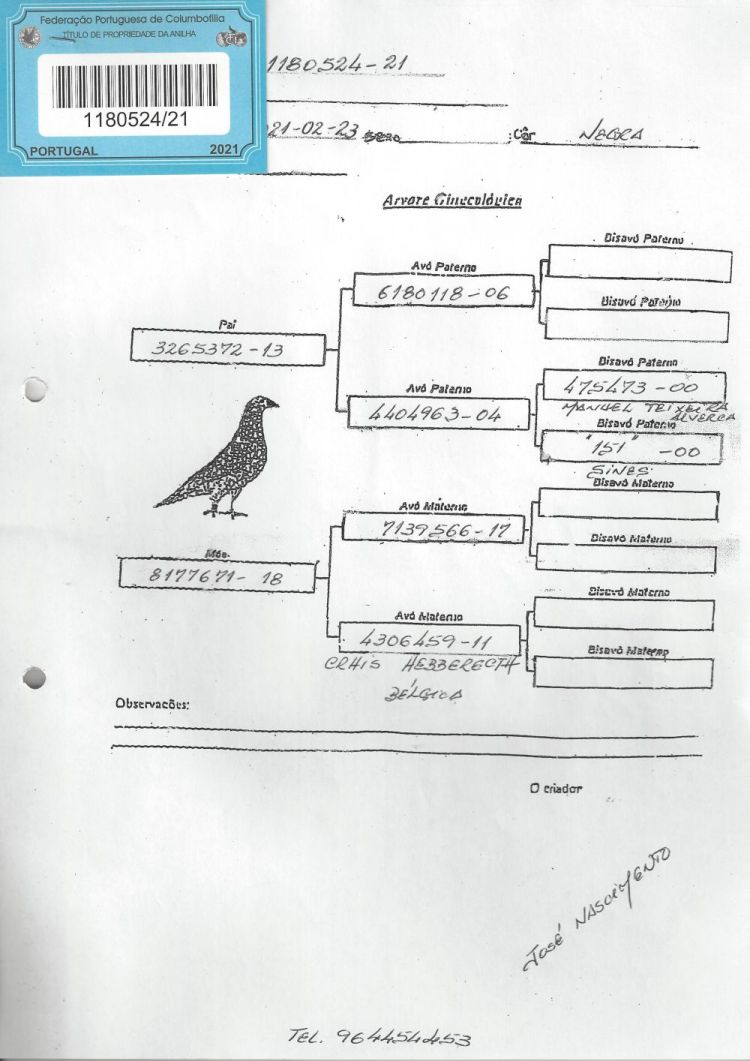 Federação Portuguesa de Columbofilia
TÍTULO DE PROPRIEDADE DA ANILHA
1180524/21
PORTUGAL 2021
1180524-21
21-02-23 Côr NEGRA
Arvore Ginecológica
Bisavó Paterno
Avó Paterno
6180118-06
Bisavó Paterno
Pai
3265372-13
Bisavó Paterno
475473-00
MANUEL TEIXEIRA
ALVERCA
Avó Paterno
4404963-04
Bisavó Paterno
"151" -00
SINES
Bisavó Materno
Avó Materno
7139566-17
Bisavó Materno
Mãe
8177671-18
Bisavó Materno
Avó Materno
4306459-11
Bisavó Materno
BÉLGICA
Observacões:
O criador
JOSÉ NASCIMENTO
TEL. 964454453